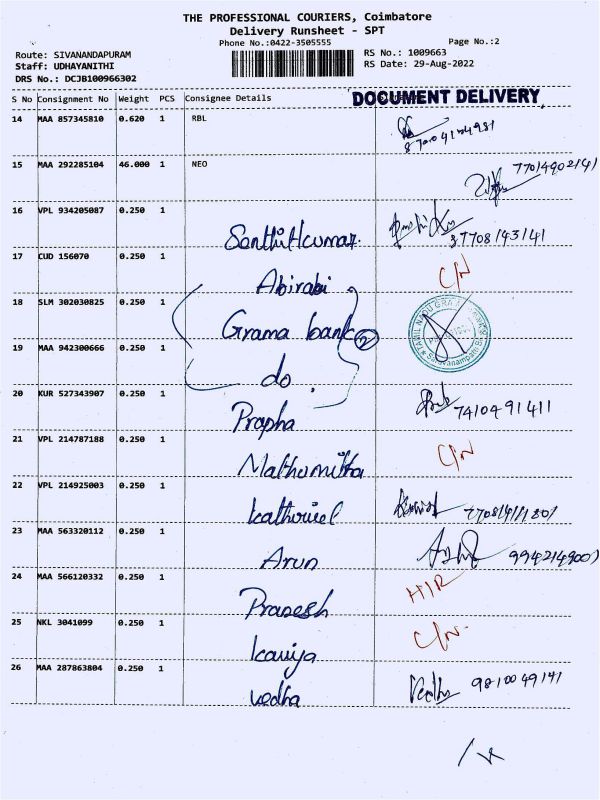 THE PROFESSIONAL COURIERS, Coimbatore
Delivery Runsheet - SPT
Phone No.:0422-3505555
Page No.:2
Route: SIVANANDAPURAM
RS No.: 1009663
Staff: UDHAYANITHI
RS Date: 29-Aug-2022
DRS No.: DCJB100966302
S No Consignment No Weight PCS Consignee Details DOCUMENT DELIVERY
14 MAA 857345810 0.620 1 RBL
15 MAA 292285104 46.000 1 NEO
16 VPL 934205087 0.250 1 Senthilkumar
17 CUD 156070 0.250 1 Abirabi C/N
18 SLM 302030825 0.250 1 Grama bank 2
19 MAA 942300666 0.250 1 do.
20 KUR 527343907 0.250 1 Prapha 7410491411
21 VPL 214787188 0.250 1 Mathumitha C/N
22 VPL 214925003 0.250 1 kathirvel
23 MAA 563320112 0.250 1 Arun
24 MAA 566120332 0.250 1 Pranesh
25 NKL 3041099 0.250 1 kaviya C/N
26 MAA 287863804 0.250 1 vedha Vedha 9810049141